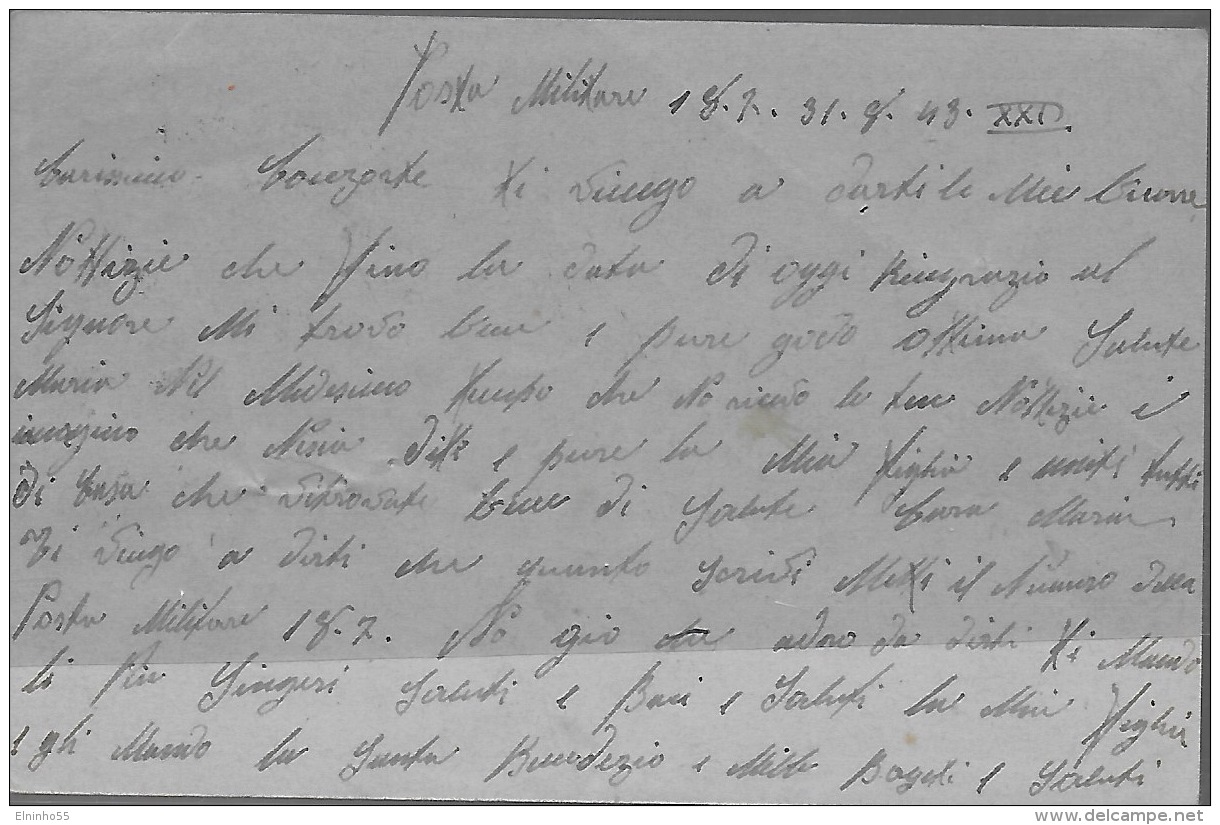 Posta Militare 187. 31.8.43. XXI.
Carissimo Conzorte ti vengo a darti le Mie buone
Nottizie che fino la data di oggi Ringrazio al
Signore Mi trovo bene e pure godo ottima Salute
Maria Nel Medesimo tempo che No ricevo le tue Nottizie i
imagino che Nesia dite e pure la Mia figlia e uniti tutti
di Casa che vitrovate bene di Salute Cara Maria
Ti vengo a dirti che quanto scrivi Metti il Numero della
Posta Militare 187. No gio che adro da dirti ti Mando
li Piu Singeri Saluti e Baci e Saluti la Mia figlia
e gli Mando la Santa Benedezio e Mille Bageti e Saluti
Elninho55
delcampe.net